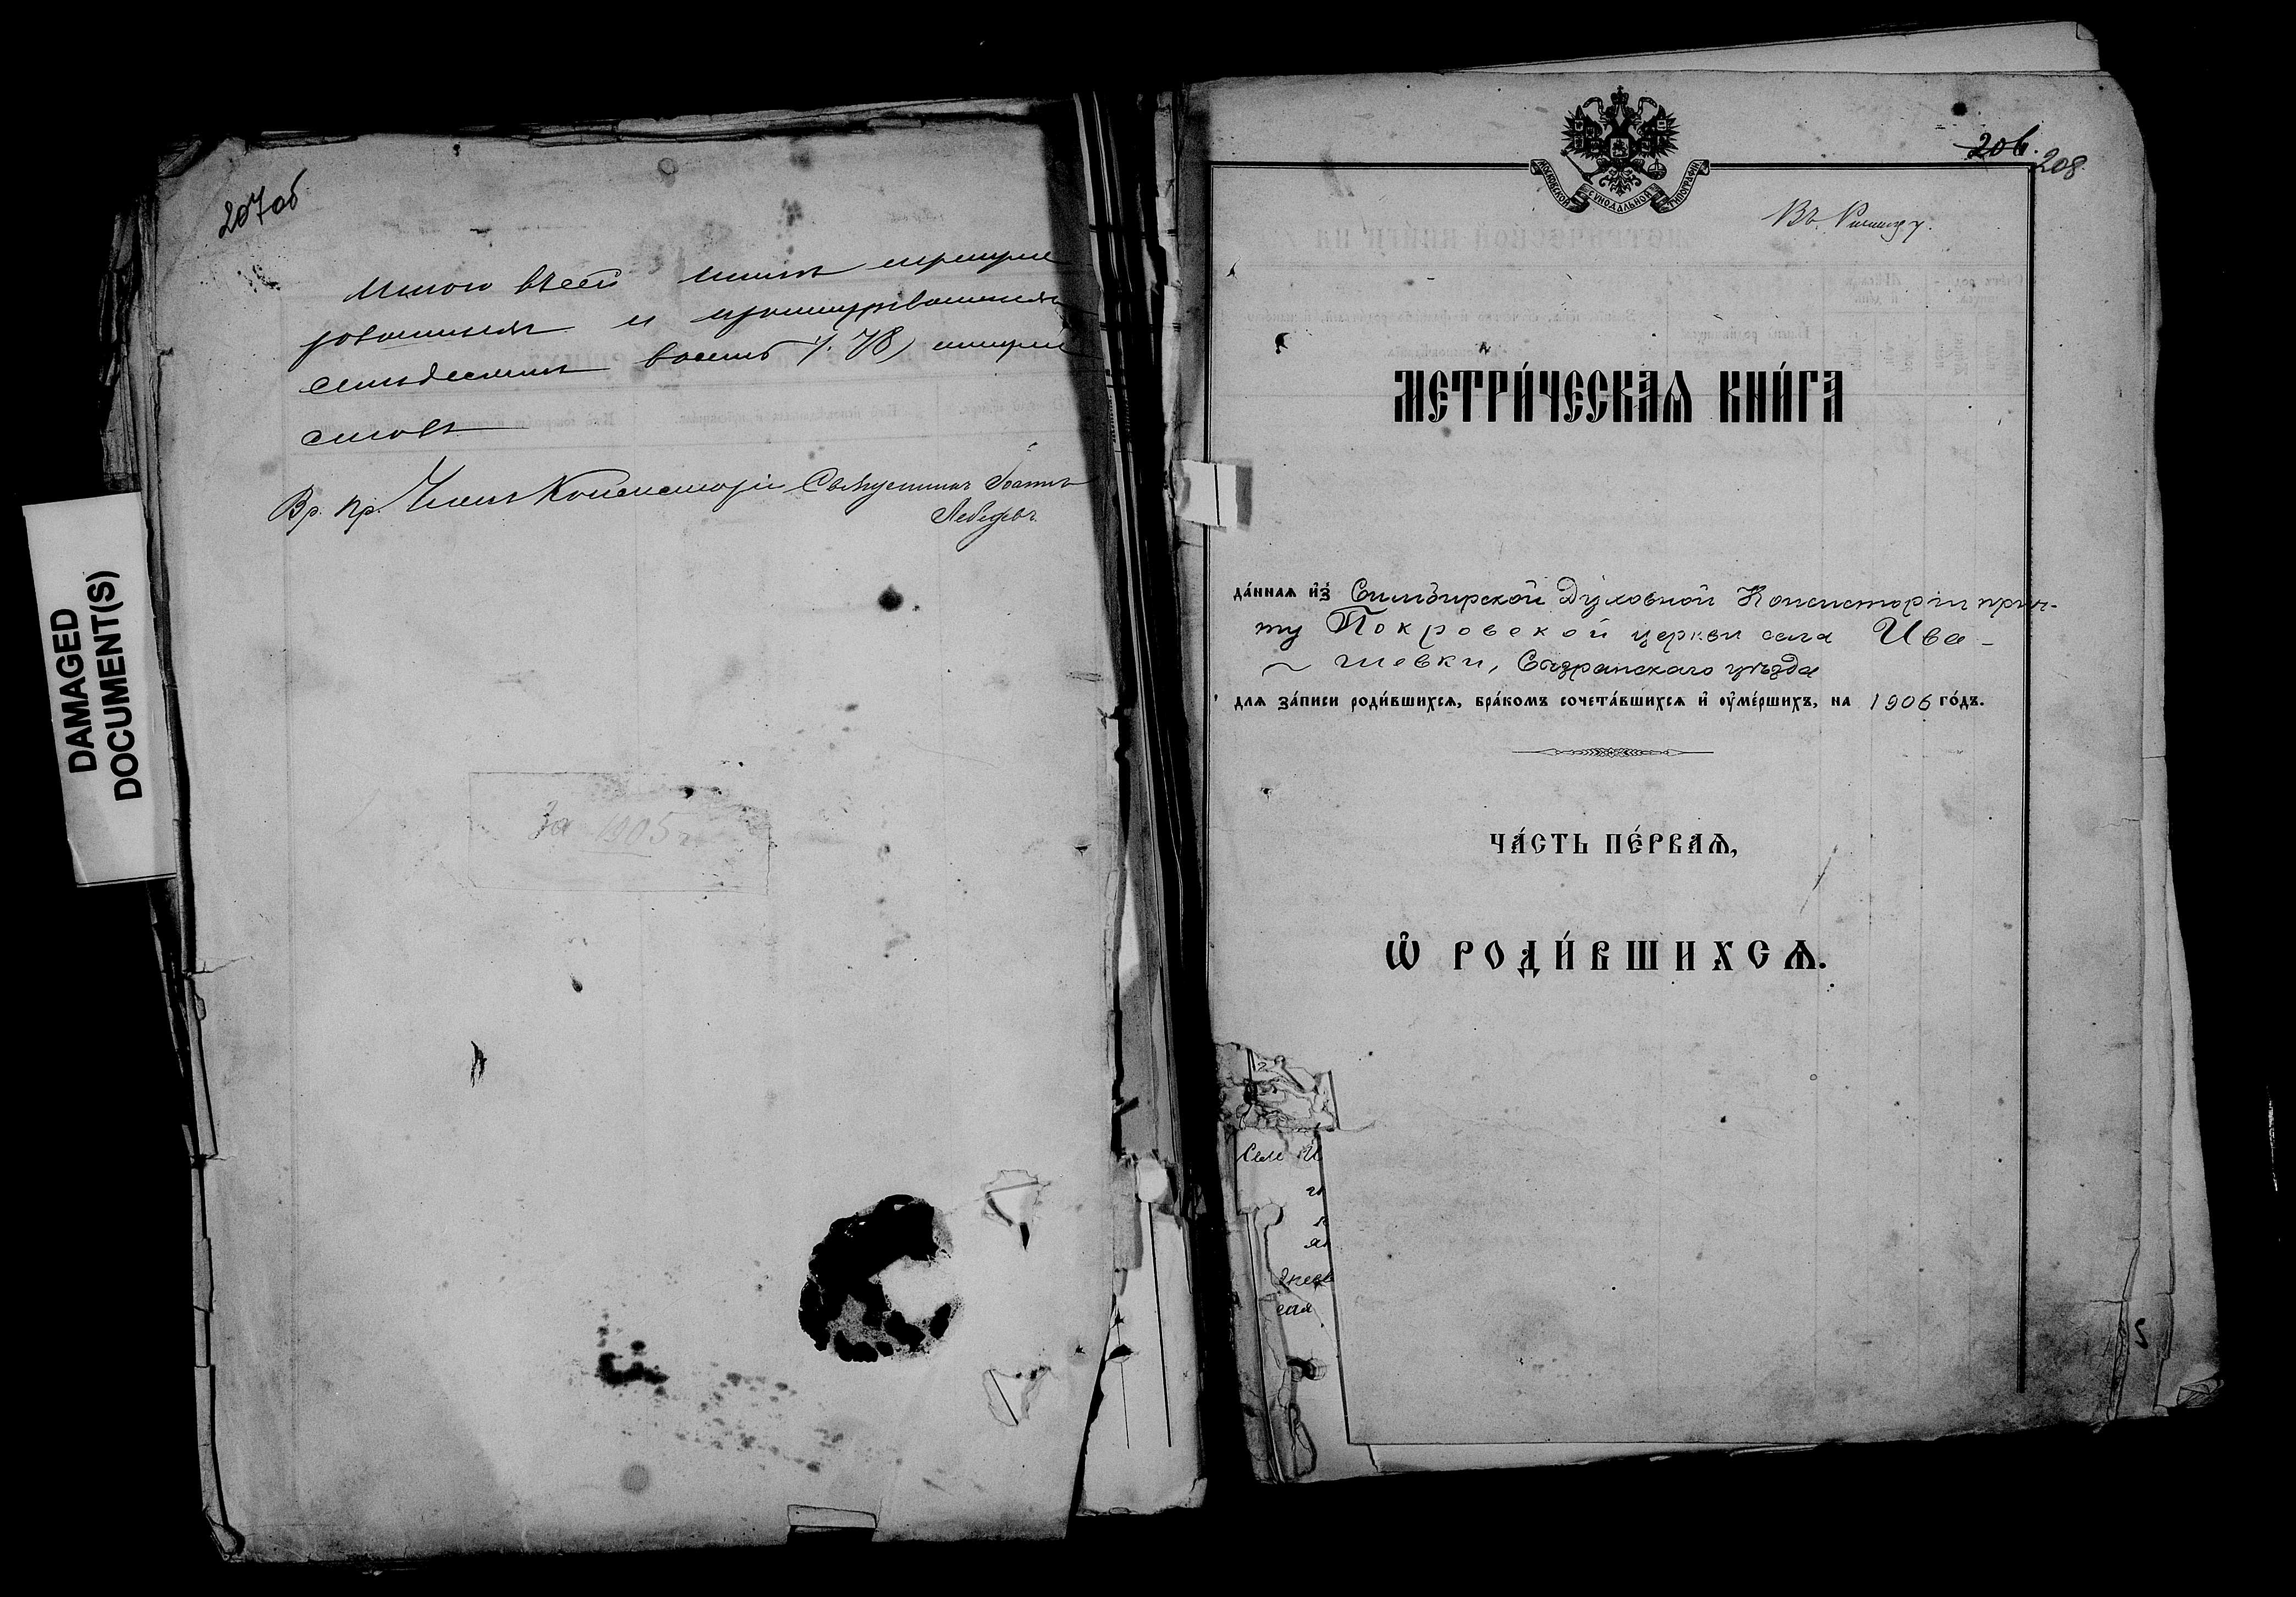 207об
Итого въ сей книгѣ нумеро
рованныхъ и прошнурованныхъ
семьдесятъ восемь (78) листовъ
Вр. Пр. Членъ Консисторіи Священникъ Іоаннъ
Лебедевъ.
За 1905 г.
DAMAGED
DOCUMENT(S)
МОСКОВСКОЙ СѴНОДАЛЬНОЙ ТИПОГРАФІИ
206.
208.
МЕТРИ́ЧЕСКАѦ КНИ́ГА
да́ннаѧ и҆з̾ Симбирской Духовной Консисторіи прич-
ту Покровской церкви села Ива-
шевки, Сызранскаго уѣзда
для за́писи роди́вшихсѧ, бра́комъ сочета́вшихсѧ и҆ ᲂу҆ме́ршихъ, на 1906 го́дъ.
ЧА́СТЬ ПЕ́РВАѦ,
Ѽ РОДИ́ВШИХСѦ.
Селе И
сел
5